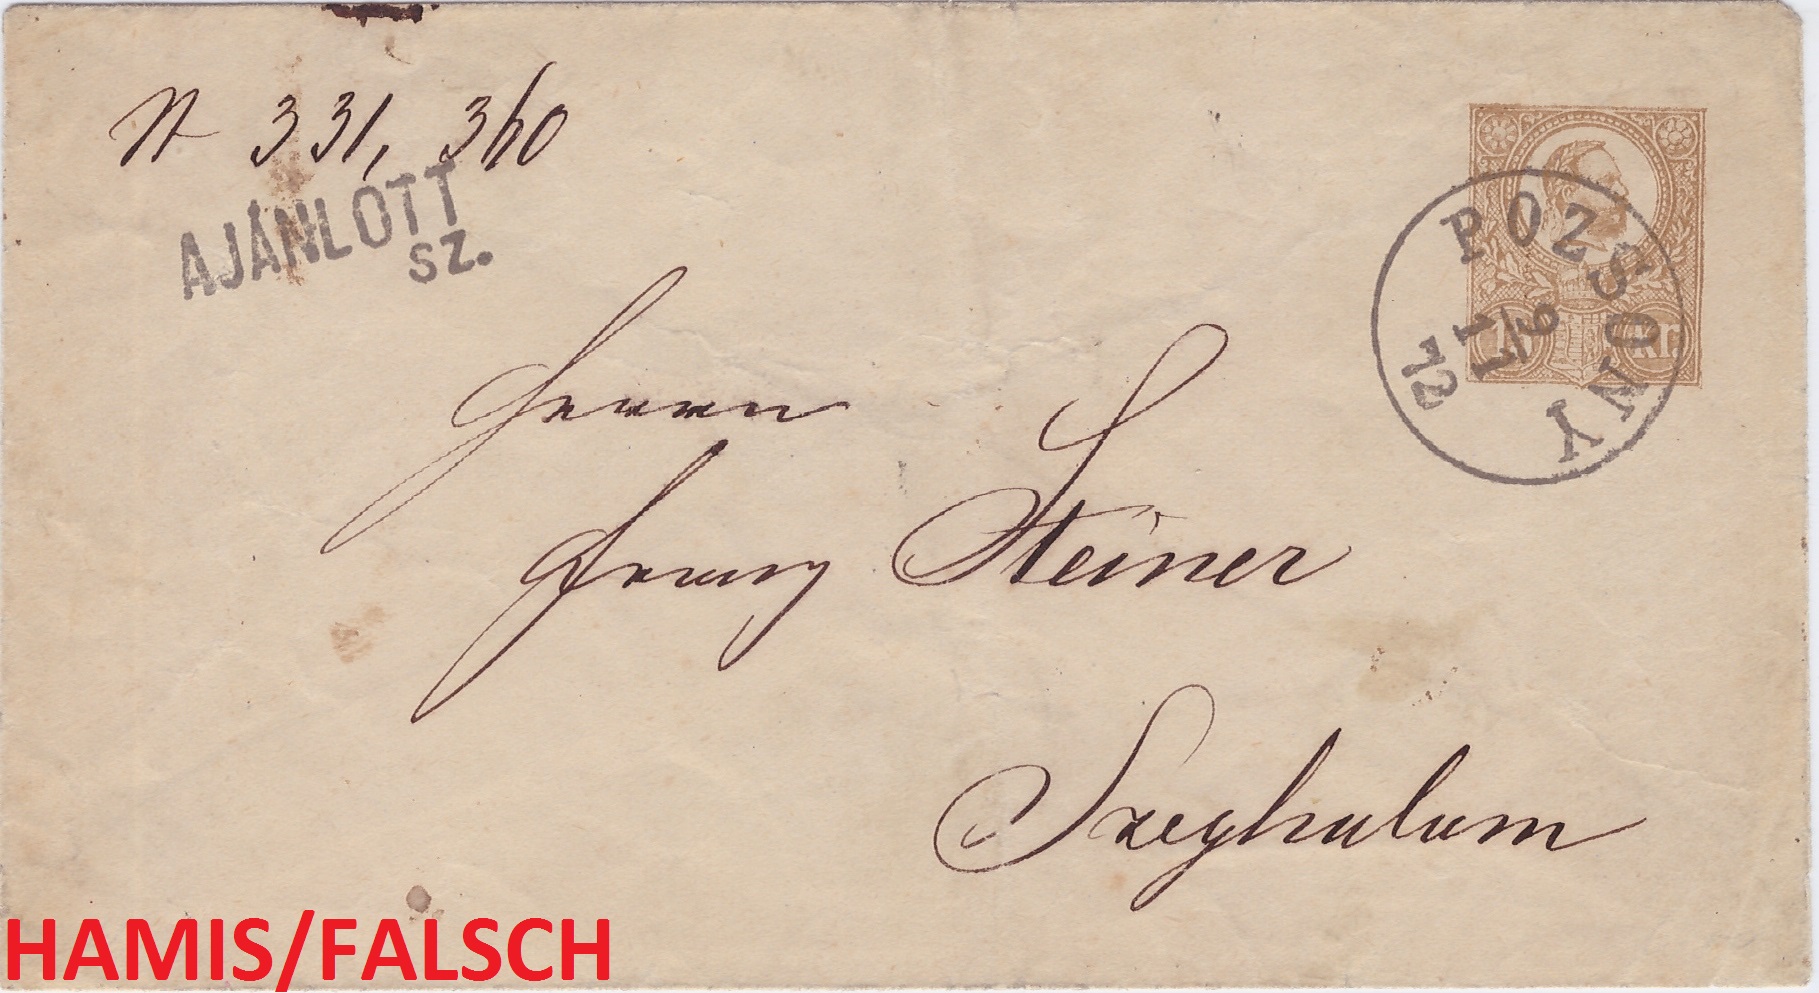 N 331, 360
AJÁNLOTT
SZ.
15 kr.
POZSONY
9/11
72
Herrn
Franz Steiner
Szeghalom
HAMIS/FALSCH